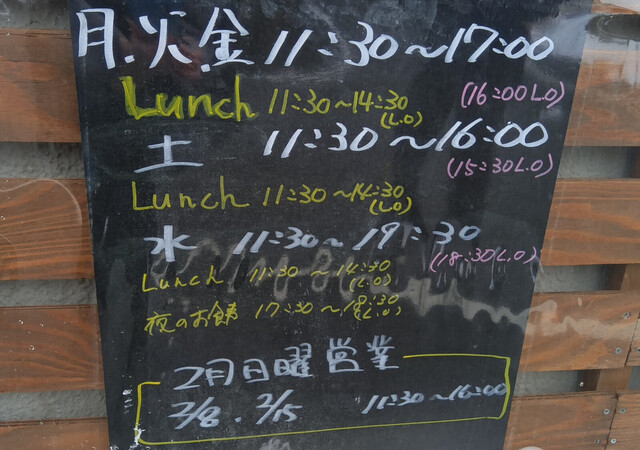 月.火.金 11:30~17:00
Lunch 11:30~14:30 (L.O) (16:00 L.O)
土 11:30~16:00
(15:30 L.O)
Lunch 11:30~14:30 (L.O)
水 11:30~19:30
(18:30 L.O)
Lunch 11:30~14:30 (L.O)
夜のお膳 17:30~18:30 (L.O)
2月日曜営業
2/8.2/15 11:30~16:00